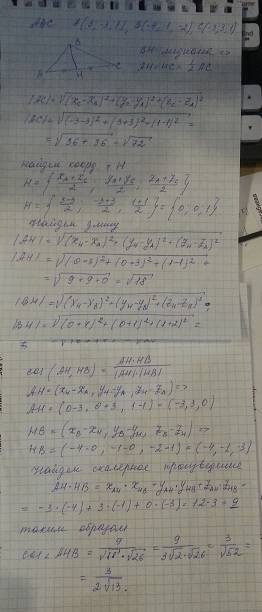 ABC A(3,-3,1), B(-4,-1,-2), C(-3,3,1)
BH медиана =>
AH=HC=1/2 AC
A H C
|AC|=√(x_C-x_A)²+(y_C-y_A)²+(z_C-z_A)²
|AC|=√(-3-3)²+(3+3)²+(1-1)² =
=√36+36 = √72
найдем коорд т H
H={(x_A+x_C)/2, (y_A+y_C)/2, (z_A+z_C)/2}
H={(3-3)/2, (-3+3)/2, (1+1)/2}={0,0,1}
найдем длину
|AH|=√(x_H-x_A)²+(y_H-y_A)²+(z_H-z_A)²
|AH|=√(0-3)²+(0+3)²+(1-1)² =
=√9+9+0 = √18
|BH|=√(x_H-x_B)²+(y_H-y_B)²+(z_H-z_B)²
|BH|=√(0+4)²+(0+1)²+(1+2)² =
cos(AH,HB)= AH·HB/|AH|·|HB|
AH=(x_H-x_A, y_H-y_A, z_H-z_A)=>
AH=(0-3, 0+3, 1-1)=(-3,3,0)
HB=(x_B-x_H, y_B-y_H, z_B-z_H)
HB=(-4-0, -1-0, -2-1)=(-4,-1,-3)
найдем скалярное произведение
AH·HB=x_AH·x_HB+y_AH·y_HB+z_AH·z_HB=
= -3·(-4)+3·(-1)+0·(-3)=12-3=9
таким образом
cos∠AHB= 9/√18·√26 = 9/3√2·√26 = 3/√52 =
= 3/2√13.